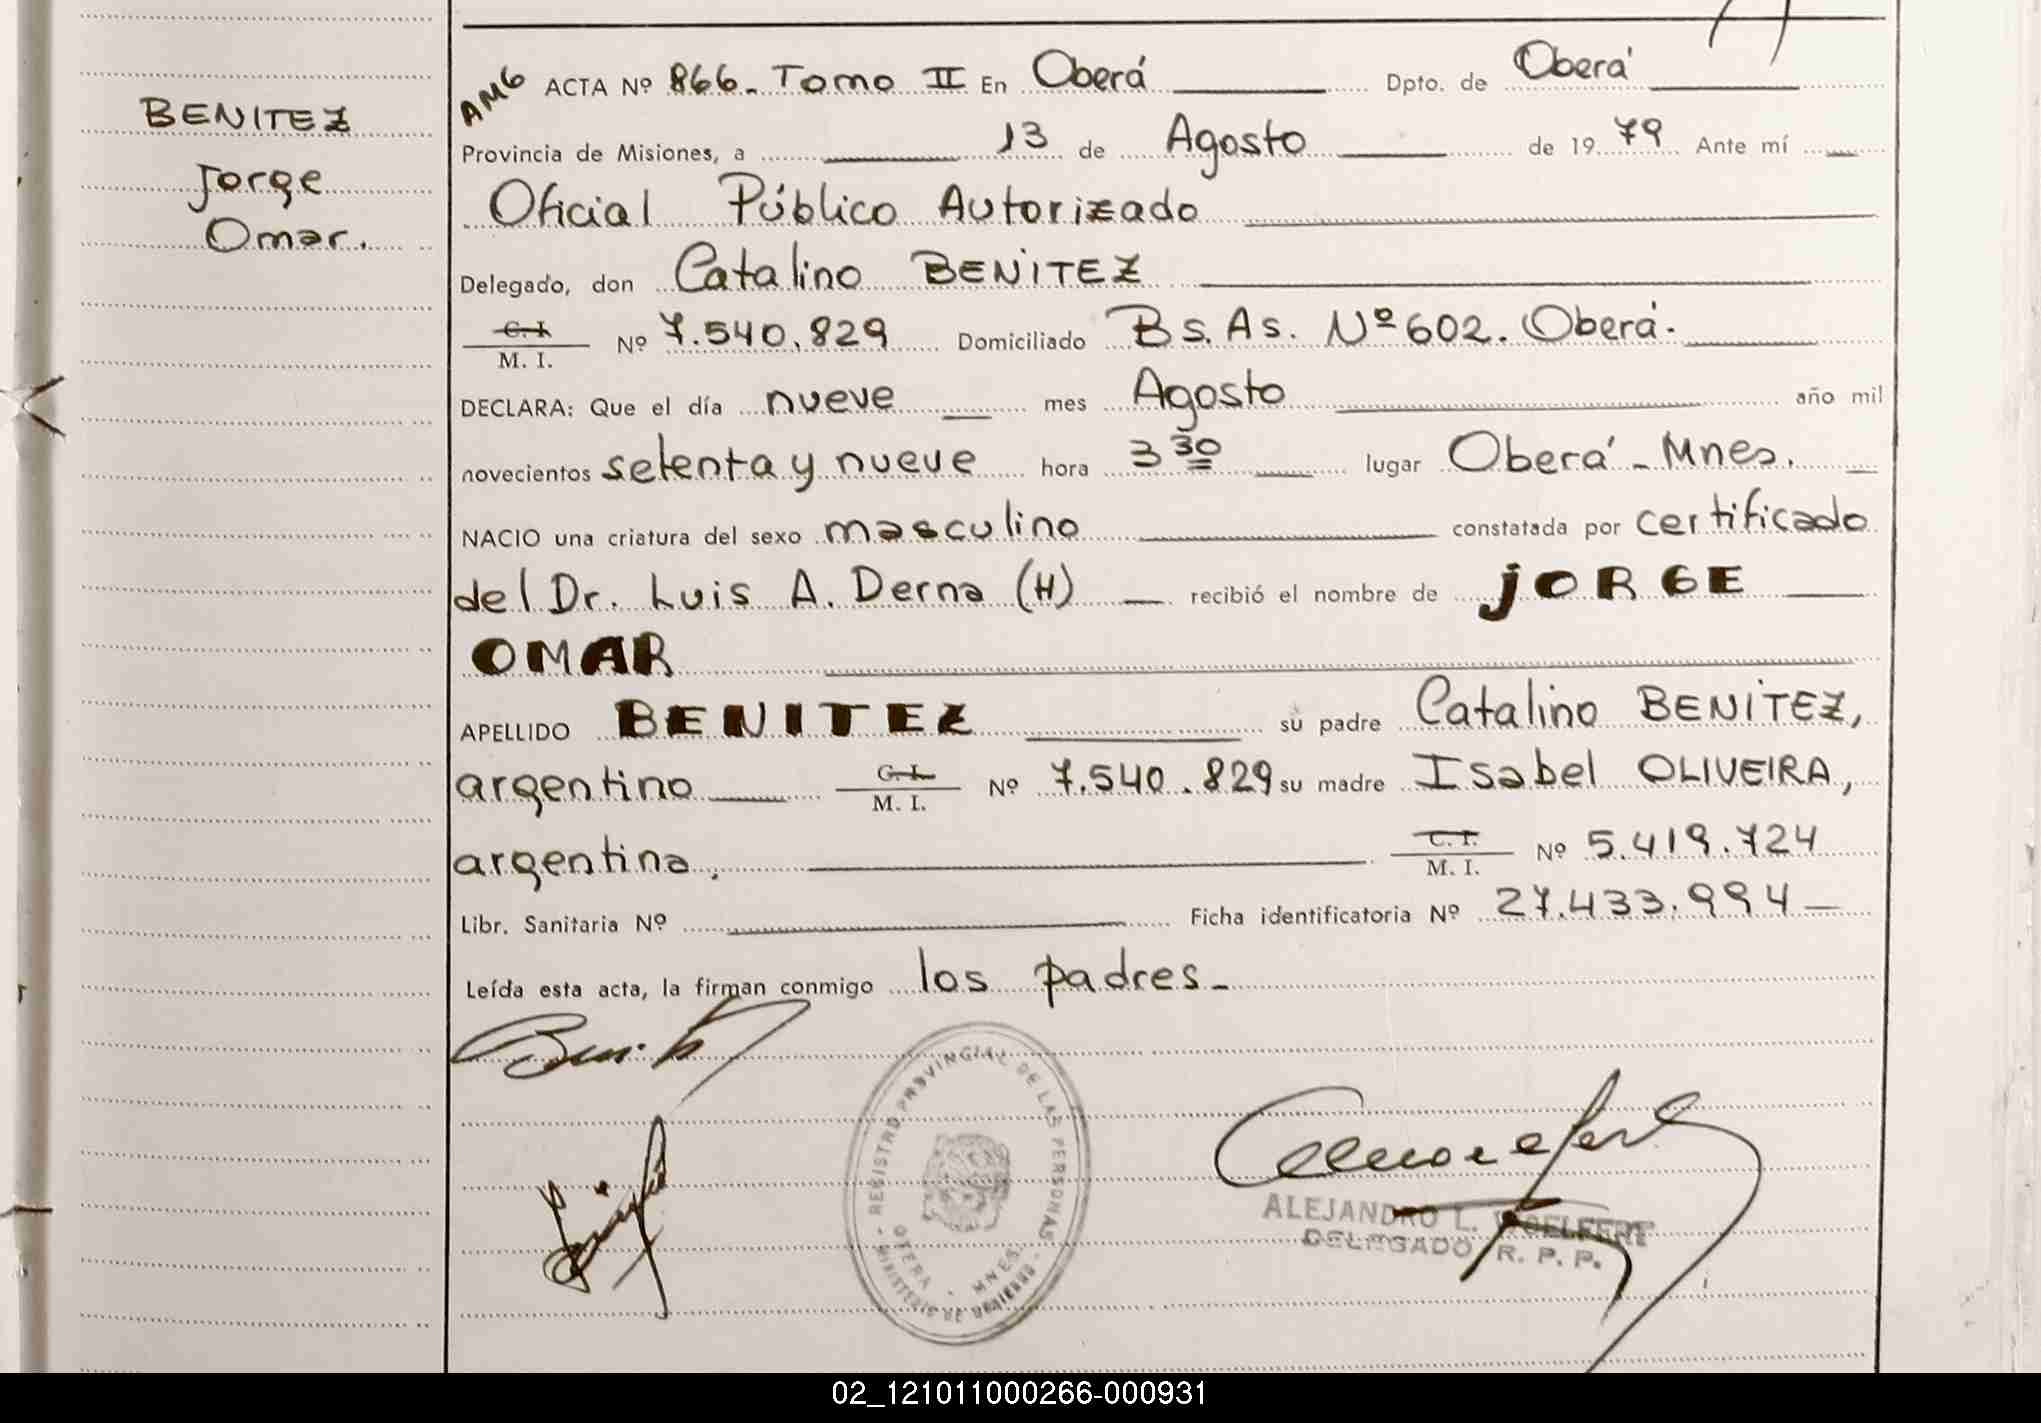 BENITEZ
Jorge
Omar.
AMG ACTA Nº 866. Tomo II En Oberá Dpto. de Oberá
Provincia de Misiones, a 13 de Agosto de 1979 Ante mí
Oficial Público Autorizado
Delegado, don Catalino BENITEZ
C. I. / M. I. Nº 7.540.829 Domiciliado Bs. As. Nº 602. Oberá.
DECLARA: Que el día nueve mes Agosto año mil
novecientos setenta y nueve hora 3 30 lugar Oberá - Mnes.
NACIO una criatura del sexo masculino constatada por certificado
del Dr. Luis A. Derna (H) recibió el nombre de JORGE
OMAR
APELLIDO BENITEZ su padre Catalino BENITEZ,
argentino C. I. / M. I. Nº 7.540.829 su madre Isabel OLIVEIRA,
argentina, C. I. / M. I. Nº 5.419.724
Libr. Sanitaria Nº Ficha identificatoria Nº 27.433.994
Leída esta acta, la firman conmigo los padres.
REGISTRO PROVINCIAL DE LAS PERSONAS
OBERA - MNES.
MINISTERIO DE GOBIERNO
ALEJANDRO L. WOELFERT
DELEGADO R. P. P.
02_121011000266-000931